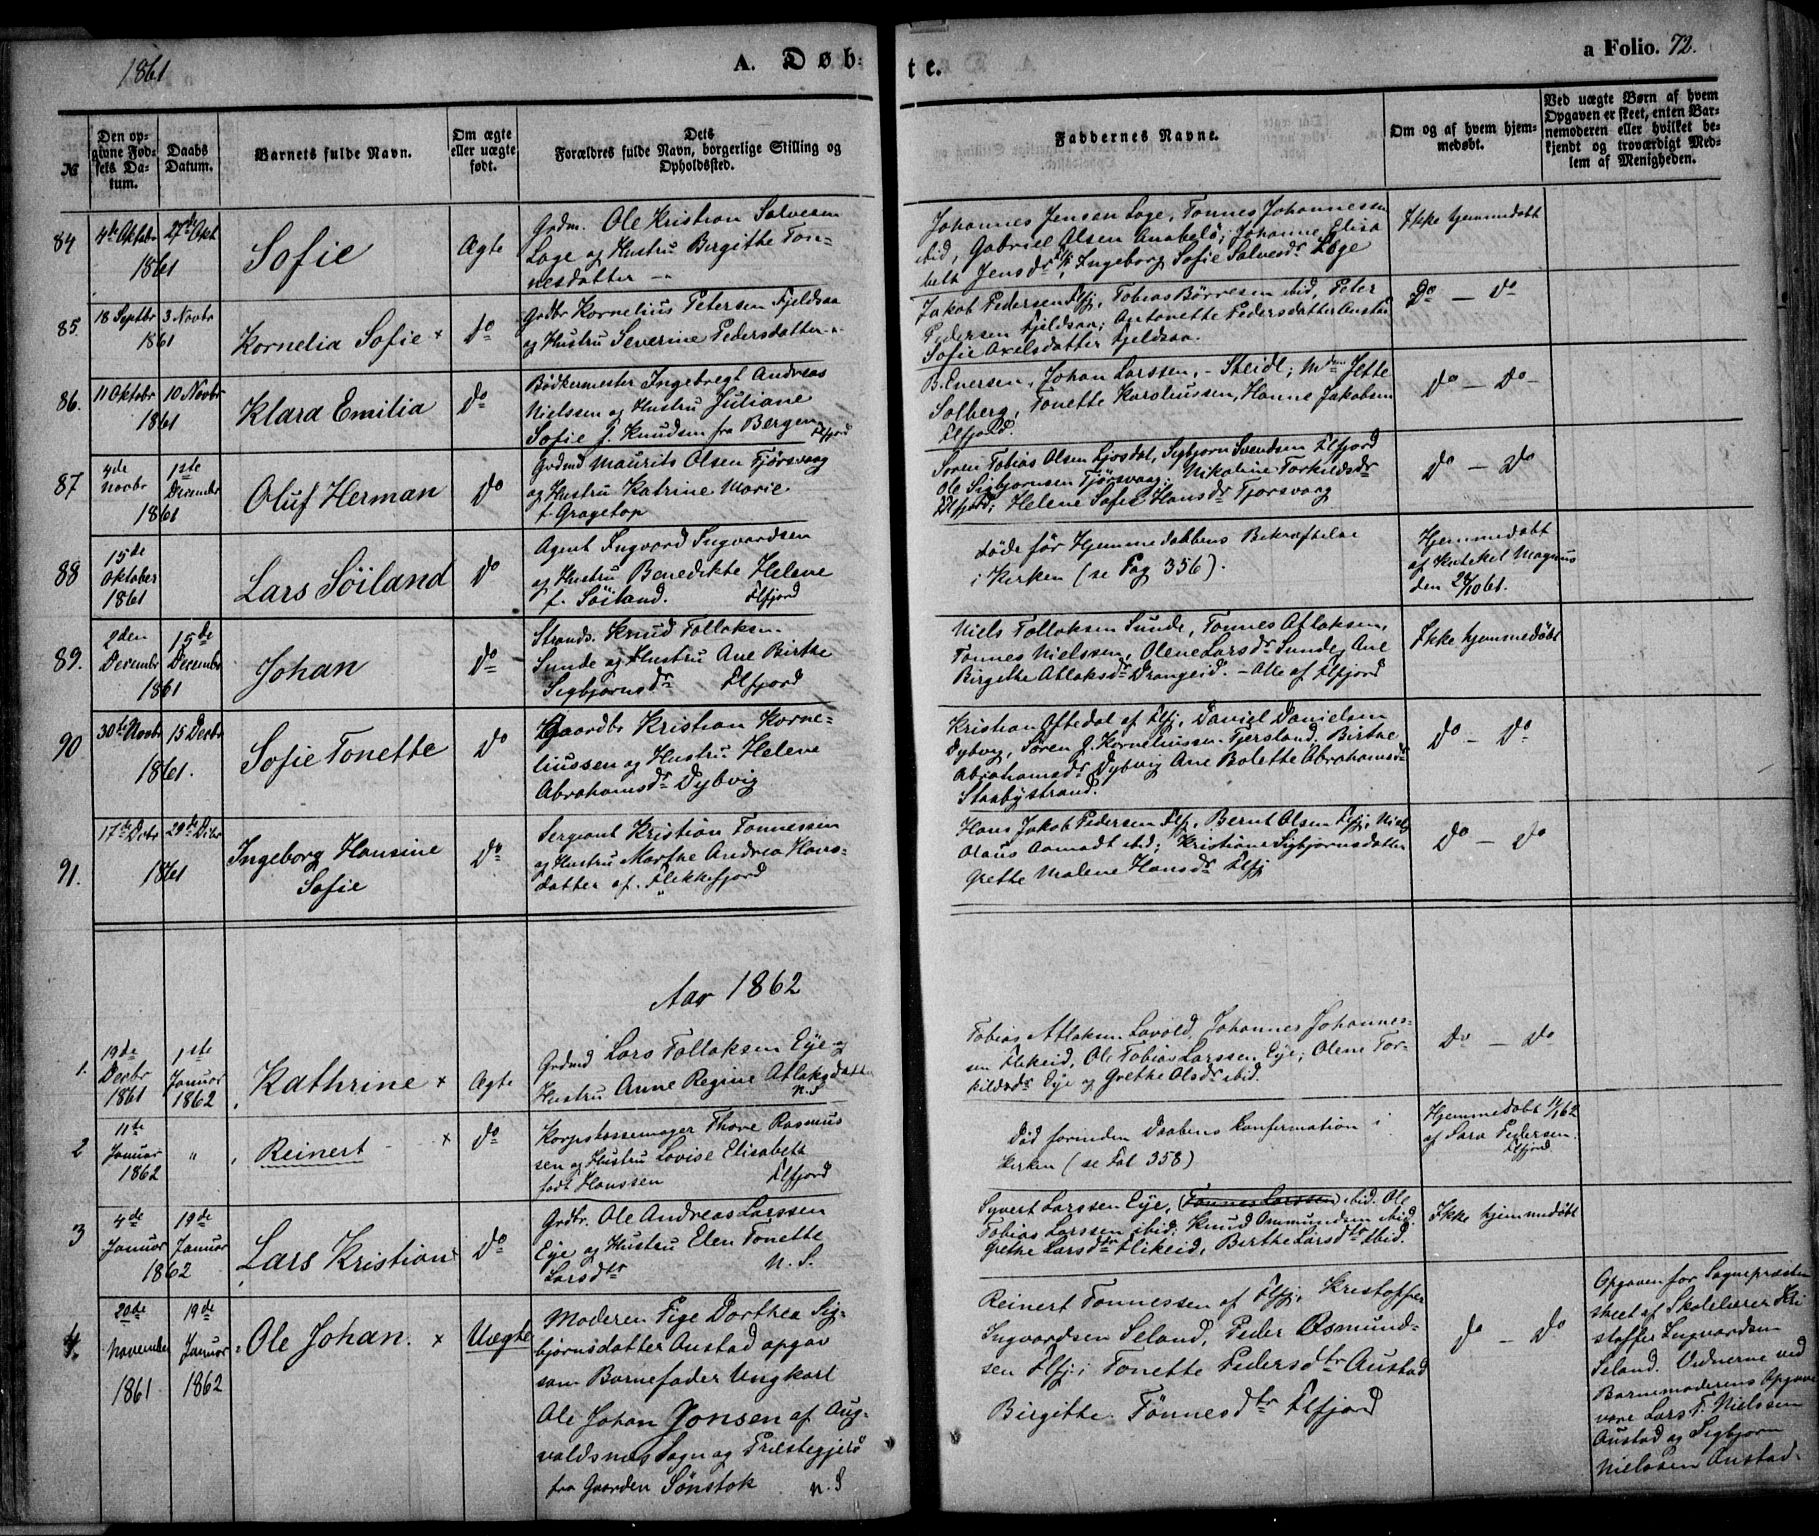 1861
A. Døb-
te.
a Folio. 72.
№
Den op-
givne Fød-
sels Da-
tum.
Daabs
Datum.
Barnets fulde Navn.
Om ægte
eller uægte
født.
Dets
Forældres fulde Navn, borgerlige Stilling og
Opholdssted.
Faddernes Navne.
Om og af hvem hjem-
medøbt.
Ved uægte Børn af hvem
Opgaven er skeet, enten Bar-
nemoderen eller hvilket be-
kjendt og troværdigt Med-
lem af Menigheden.
84
4de Oktobr
1861
27de Okt
Sofie
Ægte
Grdm. Ole Kristian Salvesen
Loge og Hustru Birgithe Ton-
nesdatter
Johannes Jensen Loge, Tonnes Johannessen
ibid, Gabriel Olsen Anabelø; Johanne Elisa
beth Jensdr, Ingeborg Sofie Salvesdr Loge
Ikke hjemmedøbt
85.
18 Septbr
1861
3 Novbr
Kornelia Sofie ×
do
Grdbr Kornelius Petersen Fjeldsaa
og Hustru Severine Pedersdatter
Jakob Pedersen Flfj, Tobias Börresen ibid, Peter
Pedersen Fjeldsaa; Antonette Pedersdatter Austad
Sofie Axelsdatter Fjeldsaa.
Do — do
86.
11 Oktobr
1861
10 Novbr
Klara Emilia
do
Bödkermester Ingebregt Andreas
Nielssen og Hustru Juliane
Sofie f. Knudsen fra Bergen
Flfjord
B. Enersen, Johan Larssen, - Steidl; Mdm Jette
Solberg, Tonette Karoliussen, Hanne Jakobsen
Flfjord.
do — Do —
87
4de
Novbr
1861
1ste
Decembr
Oluf Herman
do
Grdmd Maurits Olsen Tjørsvaag
og Hustru Katrine Marie
f. Gragetop
Sören Tobias Olsen Ljosdal, Sigbjorn Svendsen Flfjord
Ole Sigbjornsen Tjørsvaag; Nikoline Torkildsdr
Flfjord; Helene Sofie Hansdr Tjorsvaag
do — Do
88
15de
Oktober
1861
Lars Söiland
do
Agent Ingvard Ingvardsen
og Hustru Benedikte Helene
f. Söiland. Flfjord
Døde før Hjemmedaabens Bekræftelse
i Kirken (se Pag 356).
Hjemmedøbt
af Kateket Magnus
den 28/10 61.
89.
2den
Decembr
1861
15de
Decembr
Johan
do
Strands. Knud Tollaksen
Sunde og Hustru Ane Birthe
Sigbjørnsdr Flfjord
Niels Tollaksen Sunde, Tonnes Atlaksen,
Tonnes Nielssen, Olene Larsdr Sunde, Ane
Birgithe Atlaksdr Drangeid. — Alle af Flfjord
Ikke hjemmedøbt
90
30te Novbr
1861.
15 Decbr
Sofie Tonette
do
Gaardbr Kristian Korne-
liussen og Hustru Helene
Abrahamsdr Dybvig
Kristian Oftedal af Flfj, Daniel Danielsen
Dybvig, Sören J. Korneliussen Tjersland. Birthe
Abrahamsdr Dybvig Ane Bolette Abrahamsdr
Staabystrand.
do — do
91.
17de Decbr
1861
29de Decbr
Ingeborg Hansine
Sofie
do
Sergeant Kristian Tonnessen
og Hustru Marthe Andrea Hans-
datter af Flekkefjord
Hans Jakob Pedersen Flfj, Bernt Olsen Flfj, Niels
Olaus Aamodt ibid; Kristiane Sigbjornsdatter
Grethe Malene Hansdr Flfj
do — do
Aar 1862
1.
19de
Decbr
1861
1ste
Januar
1862
Kathrine ×
Ægte
Grdmd Lars Tollaksen Eye og
Hustru Anne Regine Atlaksdatter
N.S
Tobias Atlaksen Lavold, Johannes Johannes-
sen Flikeid, Ole Tobias Larssen Eye; Olene Tor-
kildsdr Eye og Grethe Olsdr ibid.
Do — do
2
11te
Januar
1862
"
Reinert ×
do
Korpskassemager Thore Rasmus
sen og Hustru Lovise Elisabeth
født Hanssen Flfjord
Død forinden Daabens Konfirmation i
Kirken (se Fol 358)
Hjemmedøbt 14/1 62
af Sara Pedersen.
Flfjord
3
4de
Januar
1862
19de
Januar
Lars Kristian
do
Grdbr. Ole Andreas Larssen
Eye og Hustru Elen Tonette
Larsdtr N. S.
Syvert Larssen Eye, (Tonnes Larssen) ibid. Ole
Tobias Larssen ibid, Knud Ommundsen ibid.
Grethe Larsdtr Flikeid, Birthe Larsdtr ibid.
Ikke hjemmedøbt
4.
20de
November
1861
19de
Januar
1862
Ole Johan. ×
Uægte
Moderen Pige Dorthea Sig-
bjørnsdatter Austad opgav
som Barnefader Ungkarl
Ole Johan Jonsen af Aug-
valdsnes Sogn og Præstegjeld
fra Gaarden Sønstok N.S
Reinert Tonnessen af Flfj, Kristoffer
Ingvardsen Seland, Peder Osmund-
sen Flfj; Tonette Pedersdtr Austad
Birgitte Tönnesdtr Flfjord
do — do
Opgaven for Sognepræsten
skeet af Skolelærer Kri
stoffer Ingvardsen
Seland. Vidnerne ved
Barnemoderens Opgave
vare Lars T. Nielssen
Austad og Sigbjørn
Nielssen Austad.